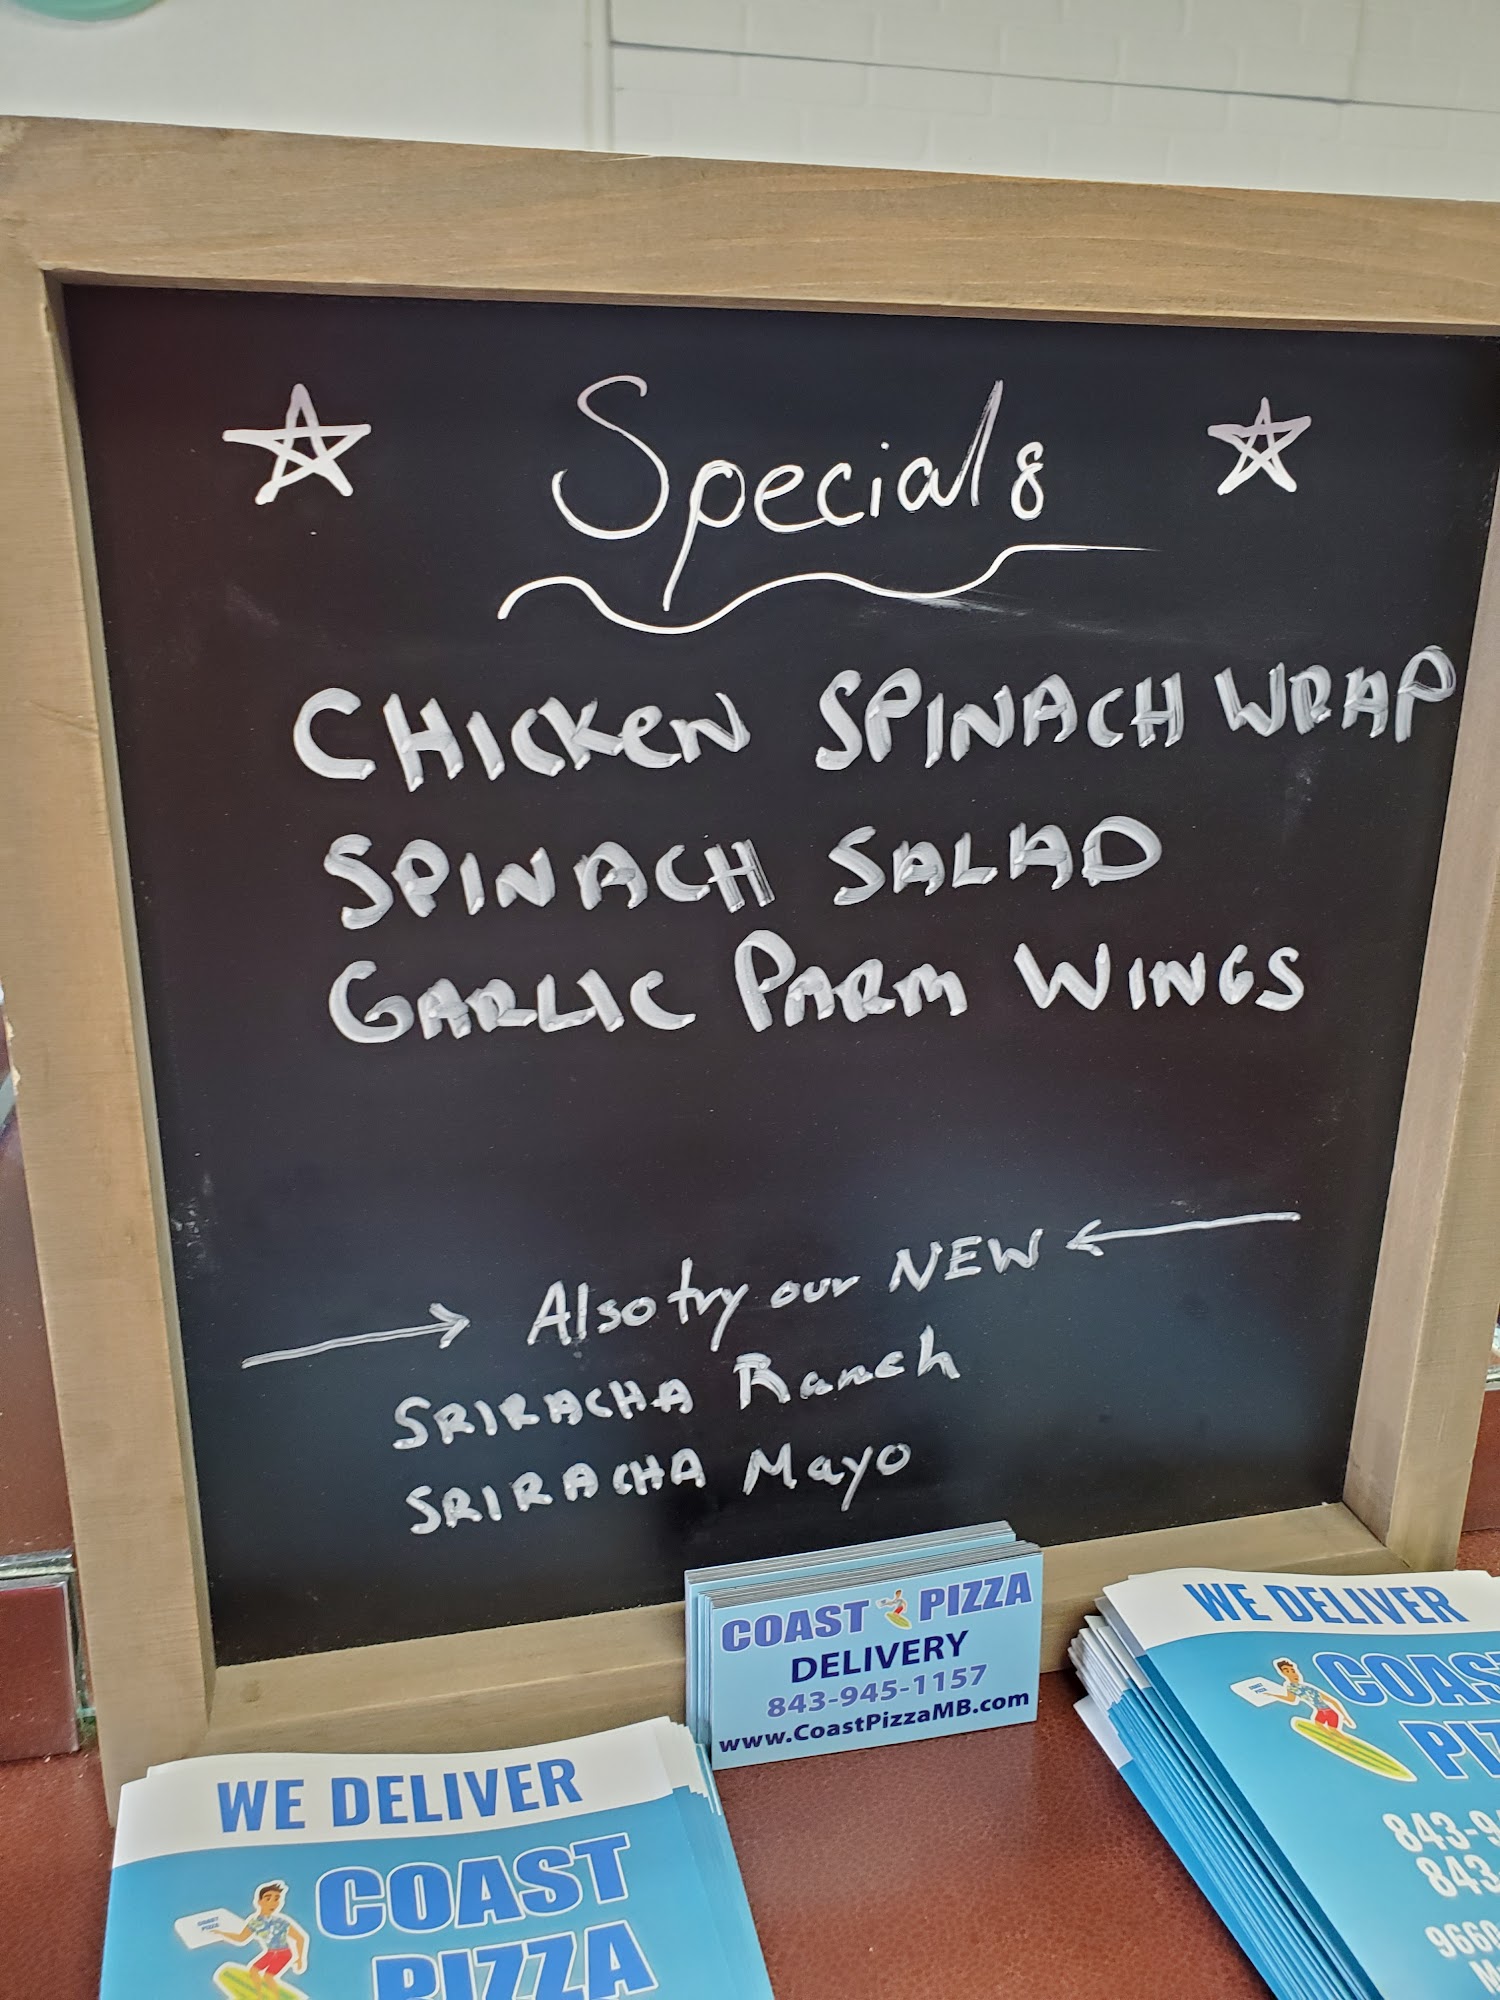 Specials
CHICKEN SPINACH WRAP
SPINACH SALAD
GARLIC PARM WINGS
Also try our NEW
SRIRACHA Ranch
SRIRACHA Mayo
COAST PIZZA
DELIVERY
843-945-1157
www.CoastPizzaMB.com
WE DELIVER
COAST
PIZZA
WE DELIVER
COAS
PIZ
843-9
843-
9660
M